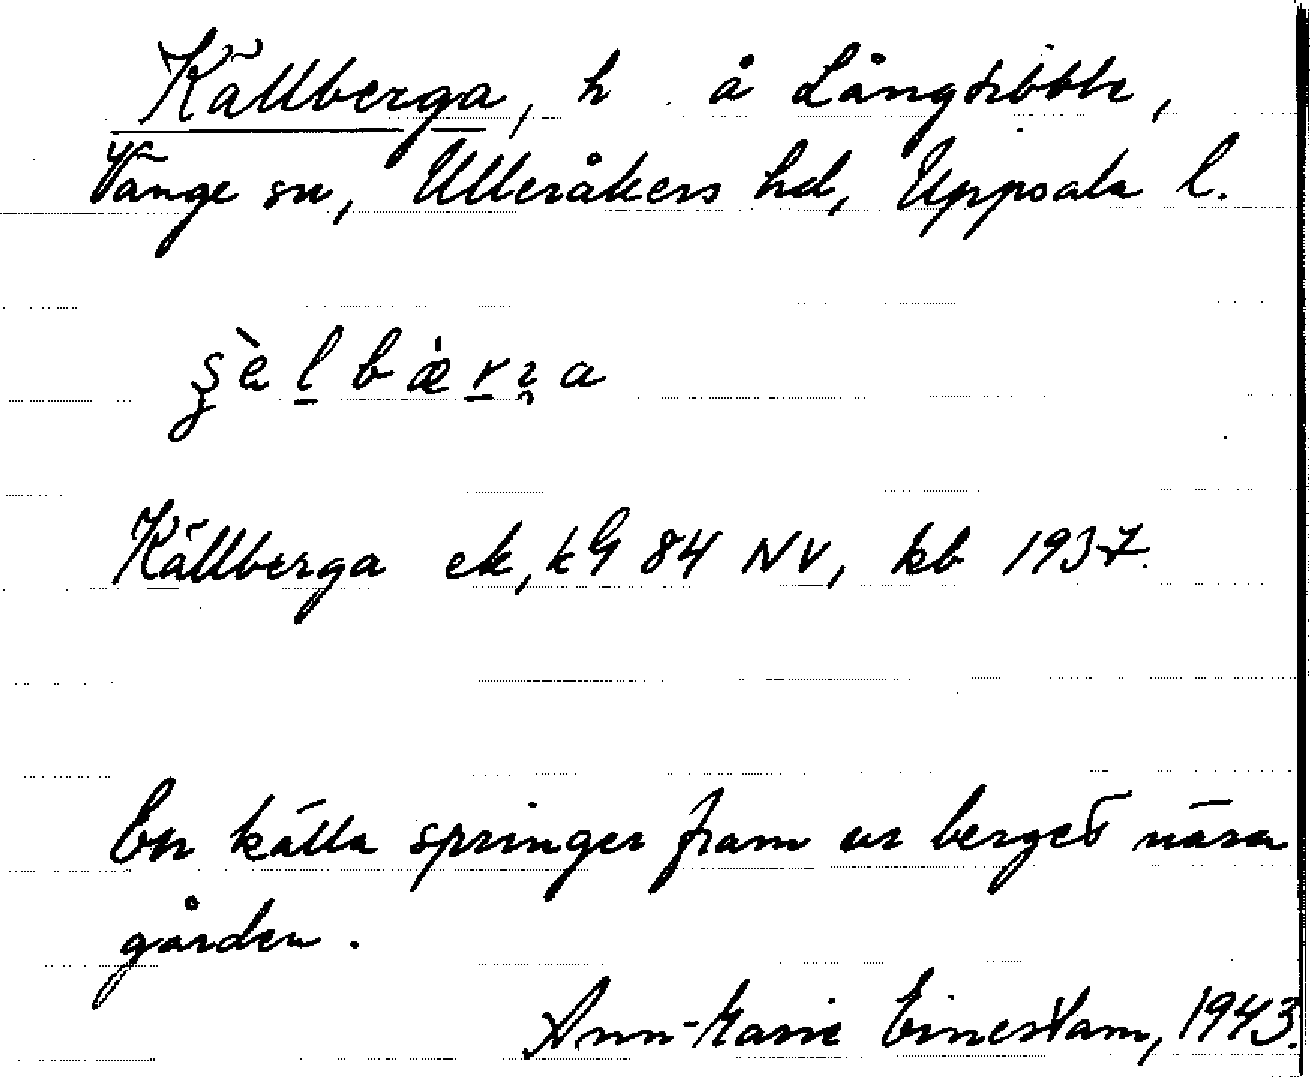 Källberga, h å Långtibble,
Vänge sn, Ulleråkers hd, Uppsala l.
Källberga ek, kG 84 NV, kb 1937.
En källa springer fram ur berget nära
gården.
Ann-Marie Einerstam, 1943.